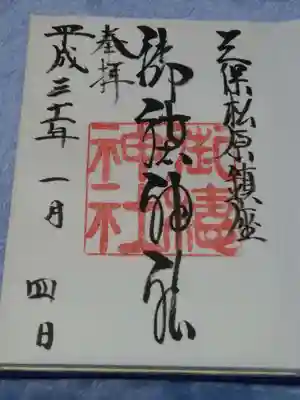 三保松原鎮座
御穗神社
御穗神社
奉拝
平成三十一年 一月 四日